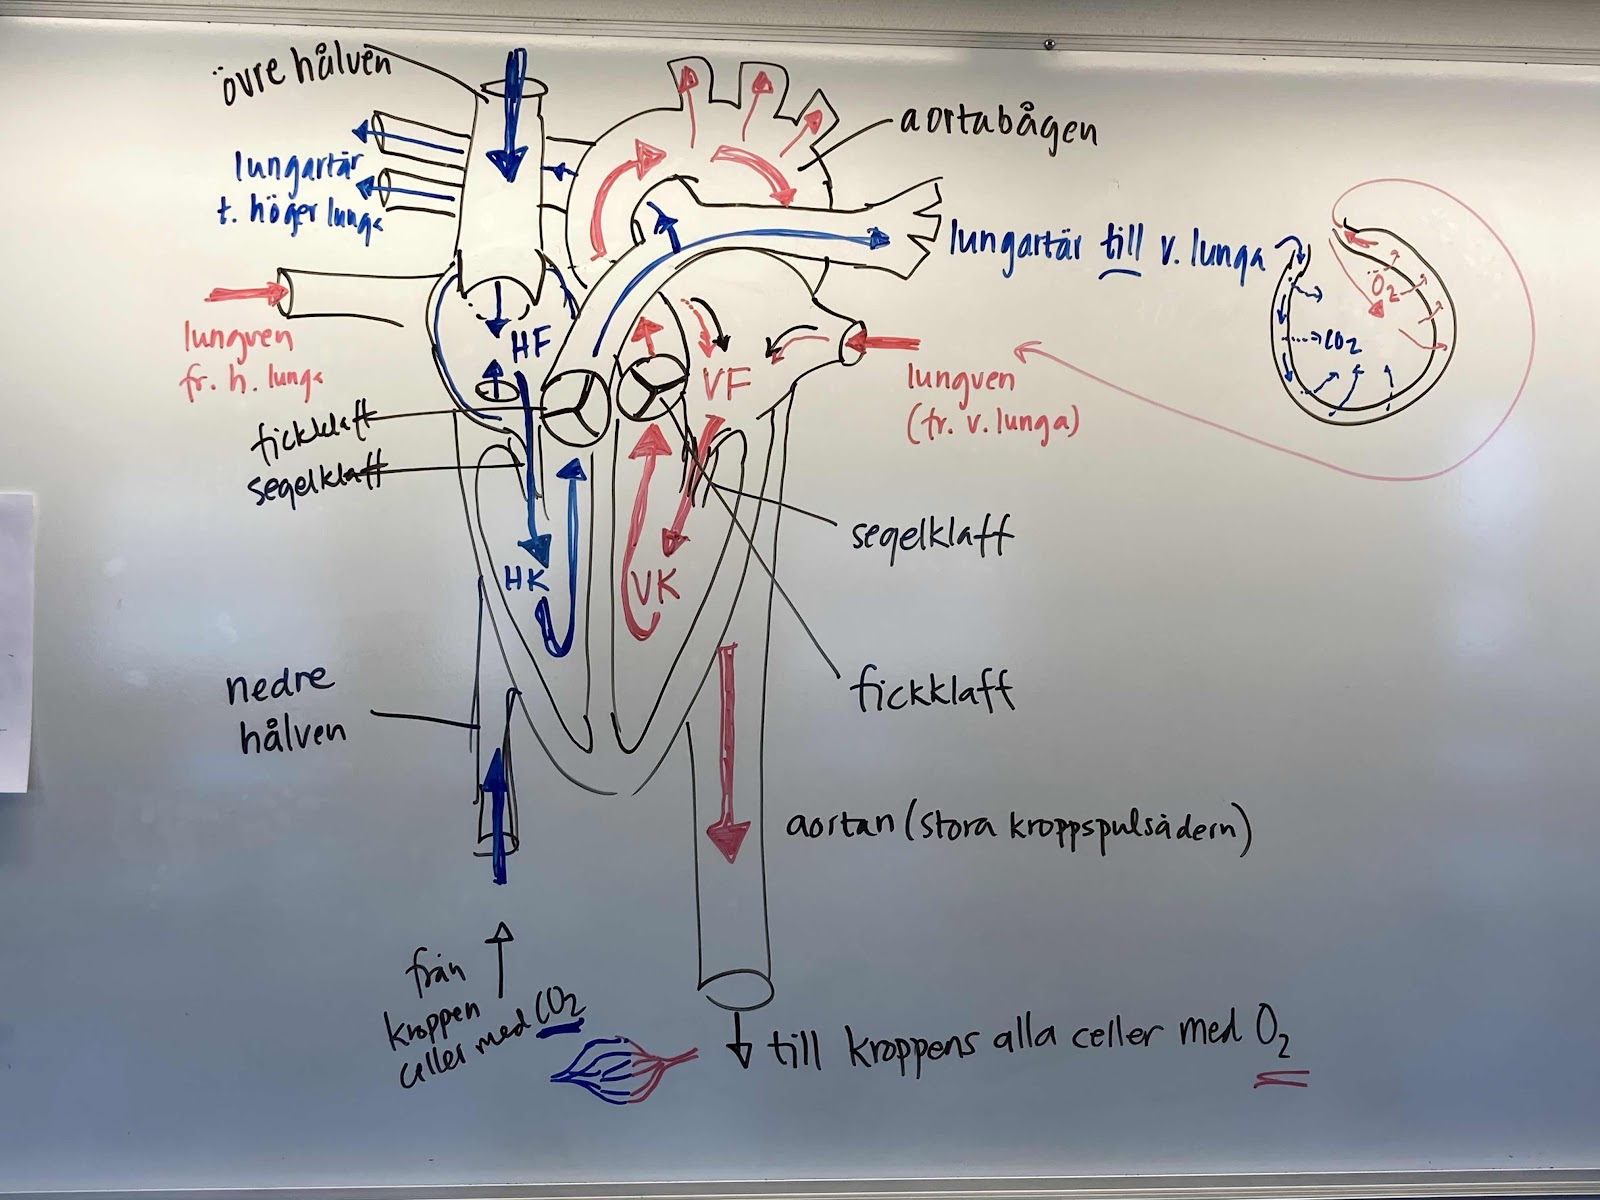 övre hålven
aortabågen
lungartär
t. höger lunga
lungartär till v. lunga
O2
CO2
HF
lungven
fr. h. lunga
VF
lungven
(fr. v. lunga)
fickklaff
segelklaff
segelklaff
HK
VK
fickklaff
nedre
hålven
aortan (stora kroppspulsådern)
från
kroppen
celler med CO2
till kroppens alla celler med O2